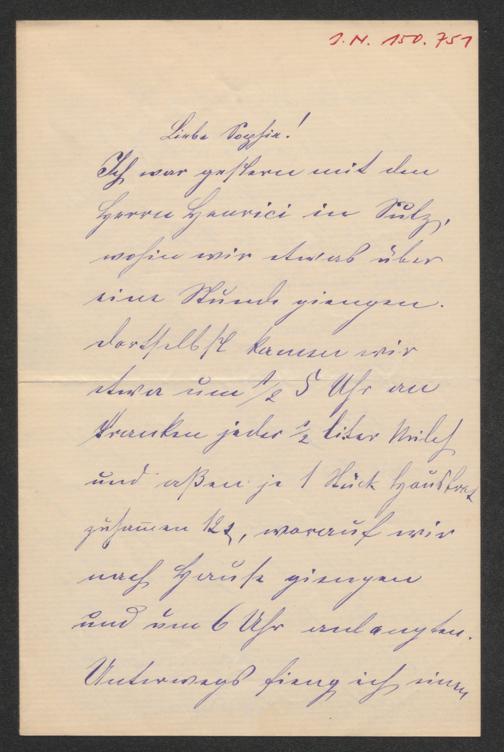 J. N. 150.751
Liebe Sophie!
Ich war gestern mit den
Herrn Henrici in Sulz,
wohin wir etwas über
eine Stunde giengen.
dortselbst kamen wir
etwa um 1/2 5 Uhr an
tranken jeder 1/2 Liter Milch
und aßen je 1 Stück Hausbrot
zusammen 12 , worauf wir
nach Hause giengen
und um 6 Uhr anlangten.
Unterwegs fieng ich einen